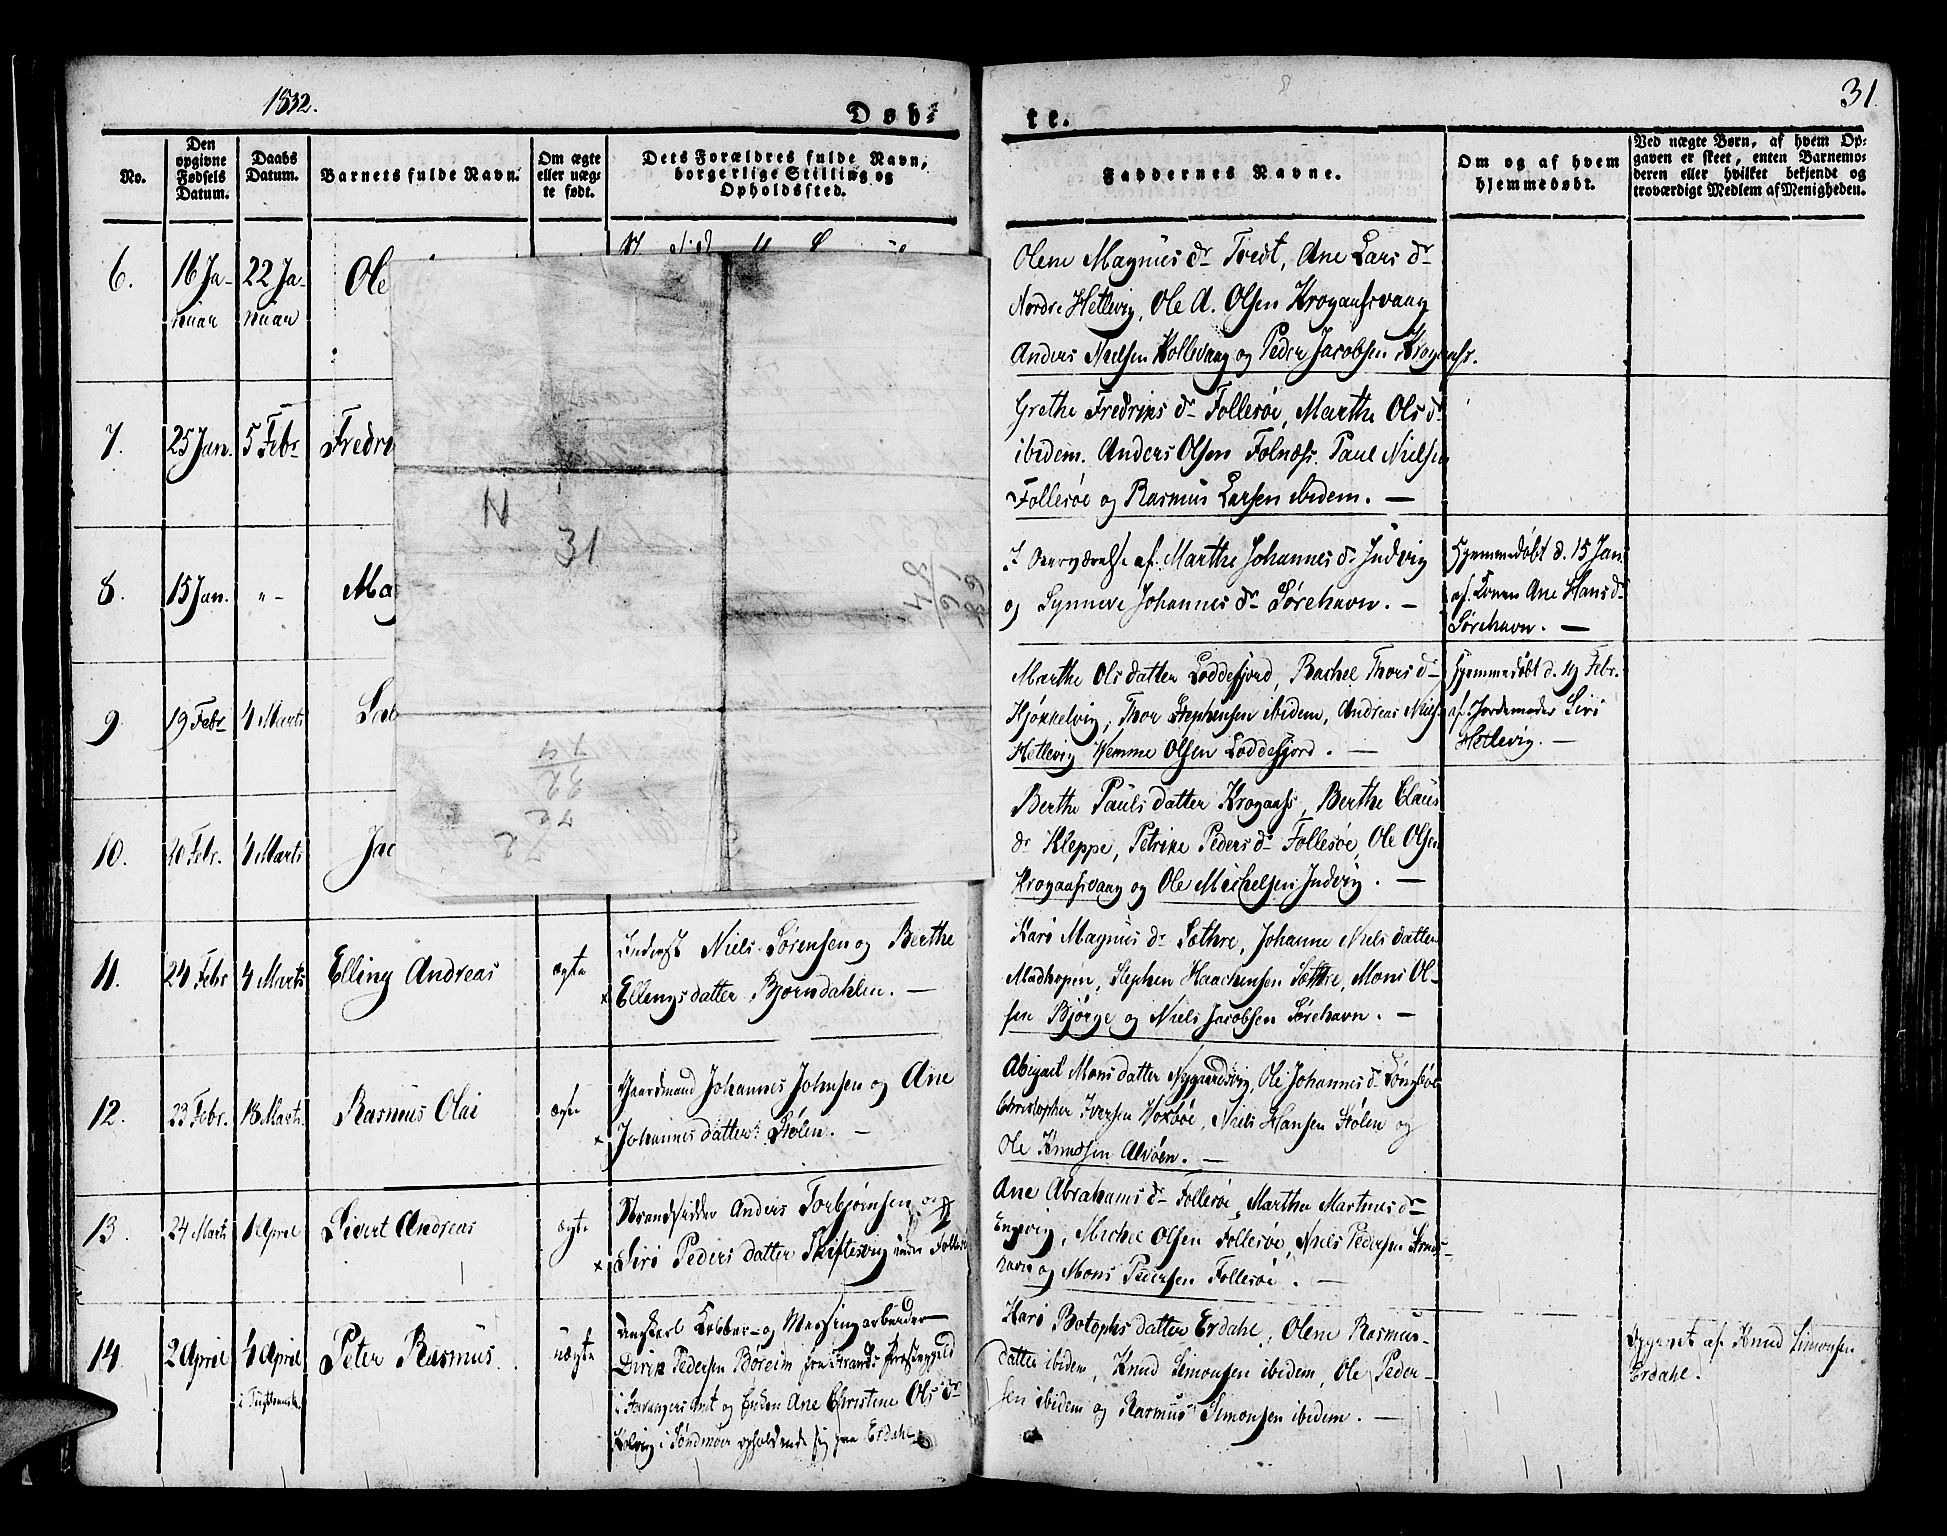 1832.
Døb-
te.
31.
No.
Den opgivne Fødsels Datum.
Daabs Datum.
Barnets fulde Navn.
Om ægte eller uægte født.
Dets Forældres fulde Navn, borgerlige Stilling og Opholdssted.
Faddernes Navne.
Om og af hvem hjemmedøbt.
Ved uægte Børn, af hvem Opgaven er skeet, enten Barnemoderen eller hvilket bekjendt og troværdigt Medlem af Menigheden.
6.
16 Ja-
nuar
22 Ja-
nuar
Ole
Olene Magnus dr Tvedt, Ane Lars dr
Nordre Hetlevig, Ole A. Olsen Krogaasvaag
Anders Nielsen Kollevaag og Peder Jacobsen Krogaass.
7.
25 Jan.
5 Febr
Fredri
Grethe Fredriks dr Follesøe, Marthe Ols dr
ibidem. Anders Olsen Følnæss. Paul Nielsen
Follesøe og Rasmus Larsen ibidem. —
N
31
8.
15 Jan.
" -
Mag
I Overværelse af. Marthe Johannes dr Indvig
og Synneve Johannes dr Sørehavn. —
Hjemmedøbt d. 15 Jan.
af Konen Ane Hans dr
Sørehavn. —
9.
19 Febr
4 Marts
Marthe Ols datter Loddefjord, Rachel Thors d-
Kjøkkelvig, Thor Stephensen ibidem, Andreas Niels
Hetlevig Hemme Olsen Loddefjord. —
Hjemmedøbt d. 19 Febr.
af Jordemoder Siri
Hetlevig. —
10.
20 Febr.
4 Marts
Jac
Berthe Pauls datter Krogaass, Berthe Claus
dr Kleppe, Petrine Peders dr Follesøe, Ole Olsen
Krogaasvaag og Ole Michelsen Indvig. —
11.
24 Febr
4 Marts
Elling Andreas
ægte
Inderst Niels Sørensen og Berthe
x Ellings datter Bjørndahlen. —
Kari Magnus dr Sæthre, Johanne Niels datter
Madhopen, Stephen Haachensen Sæthre, Mons Ol-
sen Bjørge og Niels Jacobsen Sørehavn. —
12.
23 Febr.
18 Marts
Rasmus Olai
ægte
Gaardmand Johannes Johnsen og Ane
x Johannes datter Stølen. —
Abigael Mons datter Nygaardsvig, Ole Johannes dr
Christopher Iversen Hoxøe, Niels Hansen Stølen og
Ole Knudsen Alvøen. —
13.
24 Marts
1 April
Sivert Andreas
ægte
Strandsidder Anders Torbjørnsen og
x Siri Peders datter Skiftesvig under Follesø
Ane Abrahams dr Follesøe, Marthe Martines dr
Engevig, Michel Olsen Follesøe, Niels Pedersen
havn og Mons Pedersen Follesøe. —
14.
2 April
4 April
i Tugthuuset
Peter Rasmus
uægte
Ungkarl Kobber- og Messingarbeider
Dirik Pedersen Boreim fra Strands Præstegjeld
i Stavangers Amt og Enken Ane Christine Ols dr
Kolvig i Søndmør opholdende sig paa Erdahl
Kari Botophs datter Erdahl, Olene Rasmus-
datter ibidem, Knud Simonsen ibidem, Ole Peder-
sen ibidem og Rasmus Simonsen ibidem. —
Opgivet af Knud Simonsen
Erdahl.